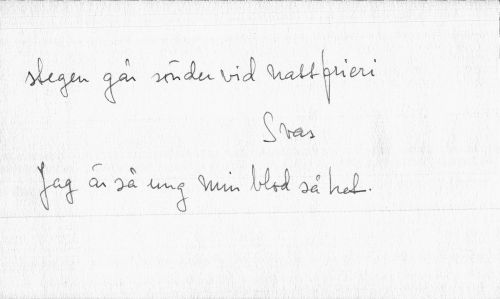 stegen går sönder vid nattfrieri
Svar
Jag är så ung min blod så het.